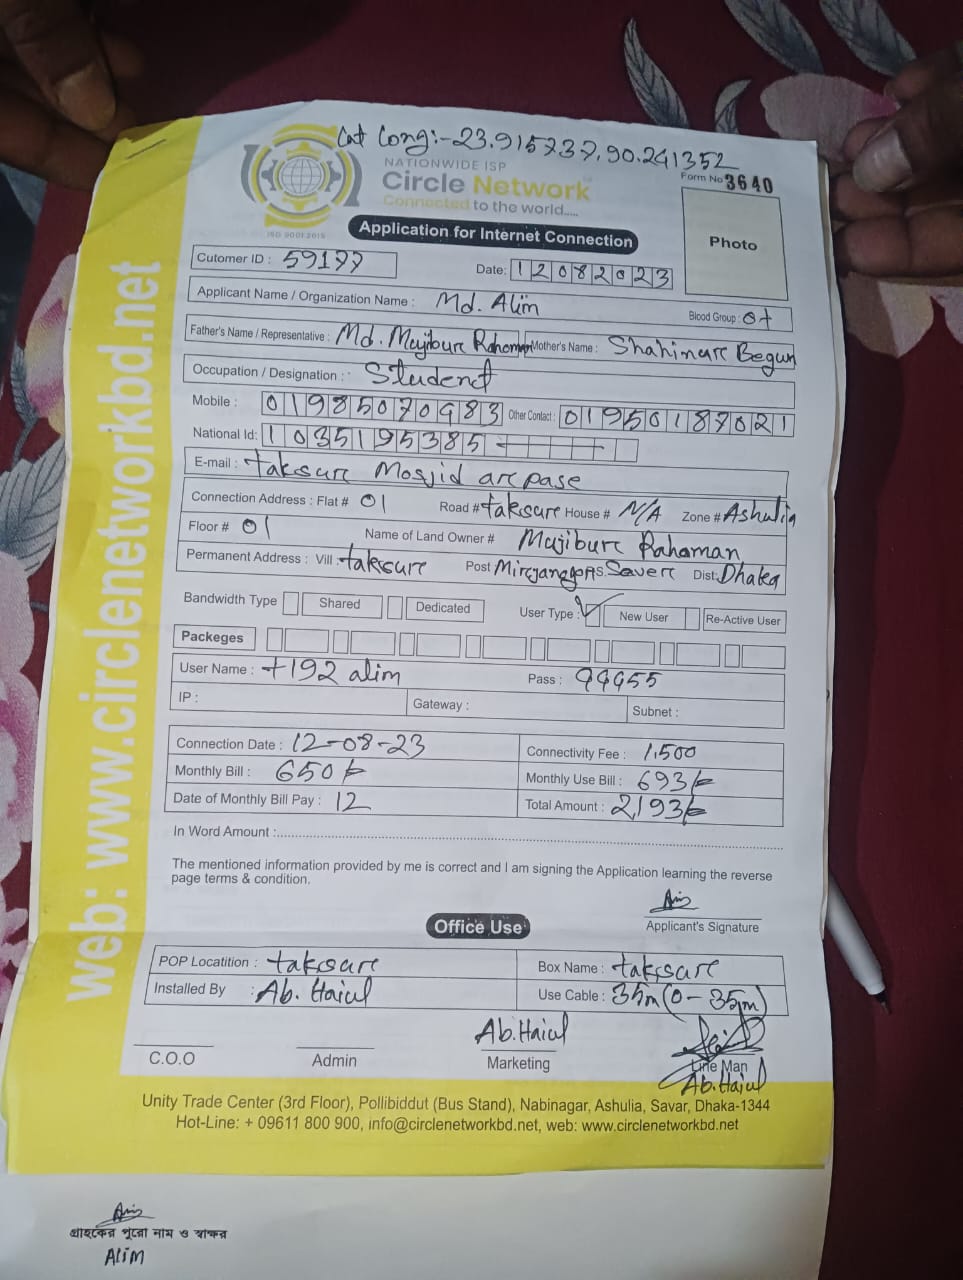 Cat Long:-23.915737,90.241352
NATIONWIDE ISP
Circle Network
Connected to the world.....
ISO 9001:2015
Form No 3640
Application for Internet Connection
Photo
Cutomer ID : 59177
Date: 12082023
Applicant Name / Organization Name : Md. Alim
Blood Group : O+
Father's Name / Representative : Md. Mujibur Rahoman Mother's Name : Shahinur Begum
Occupation / Designation : Student
Mobile : 01985070983 Other Contact : 01950187021
National Id: 1035195385
E-mail : taksure Mosjid ar pase
Connection Address : Flat # 01 Road # taksure House # N/A Zone # Ashulia
Floor # 01 Name of Land Owner # Mujibur Rahaman
Permanent Address : Vill : taksure Post P.S. Saver Dist: Dhaka
Bandwidth Type Shared Dedicated User Type : New User Re-Active User
Packeges
User Name : t192 alim Pass : 99955
IP : Gateway : Subnet :
Connection Date : 12-08-23 Connectivity Fee : 1,500
Monthly Bill : 650/- Monthly Use Bill : 693/-
Date of Monthly Bill Pay : 12 Total Amount : 2,193/-
In Word Amount :
The mentioned information provided by me is correct and I am signing the Application learning the reverse
page terms & condition.
Applicant's Signature
Office Use
POP Locatition : taksure Box Name : taksure
Installed By : Ab. Haiul Use Cable : 35m (0-35m)
Ab. Haiul
C.O.O Admin Marketing Line Man
Ab. Haiul
Unity Trade Center (3rd Floor), Pollibiddut (Bus Stand), Nabinagar, Ashulia, Savar, Dhaka-1344
Hot-Line: + 09611 800 900, info@circlenetworkbd.net, web: www.circlenetworkbd.net
web: www.circlenetworkbd.net
গ্রাহকের পুরো নাম ও স্বাক্ষর
Alim